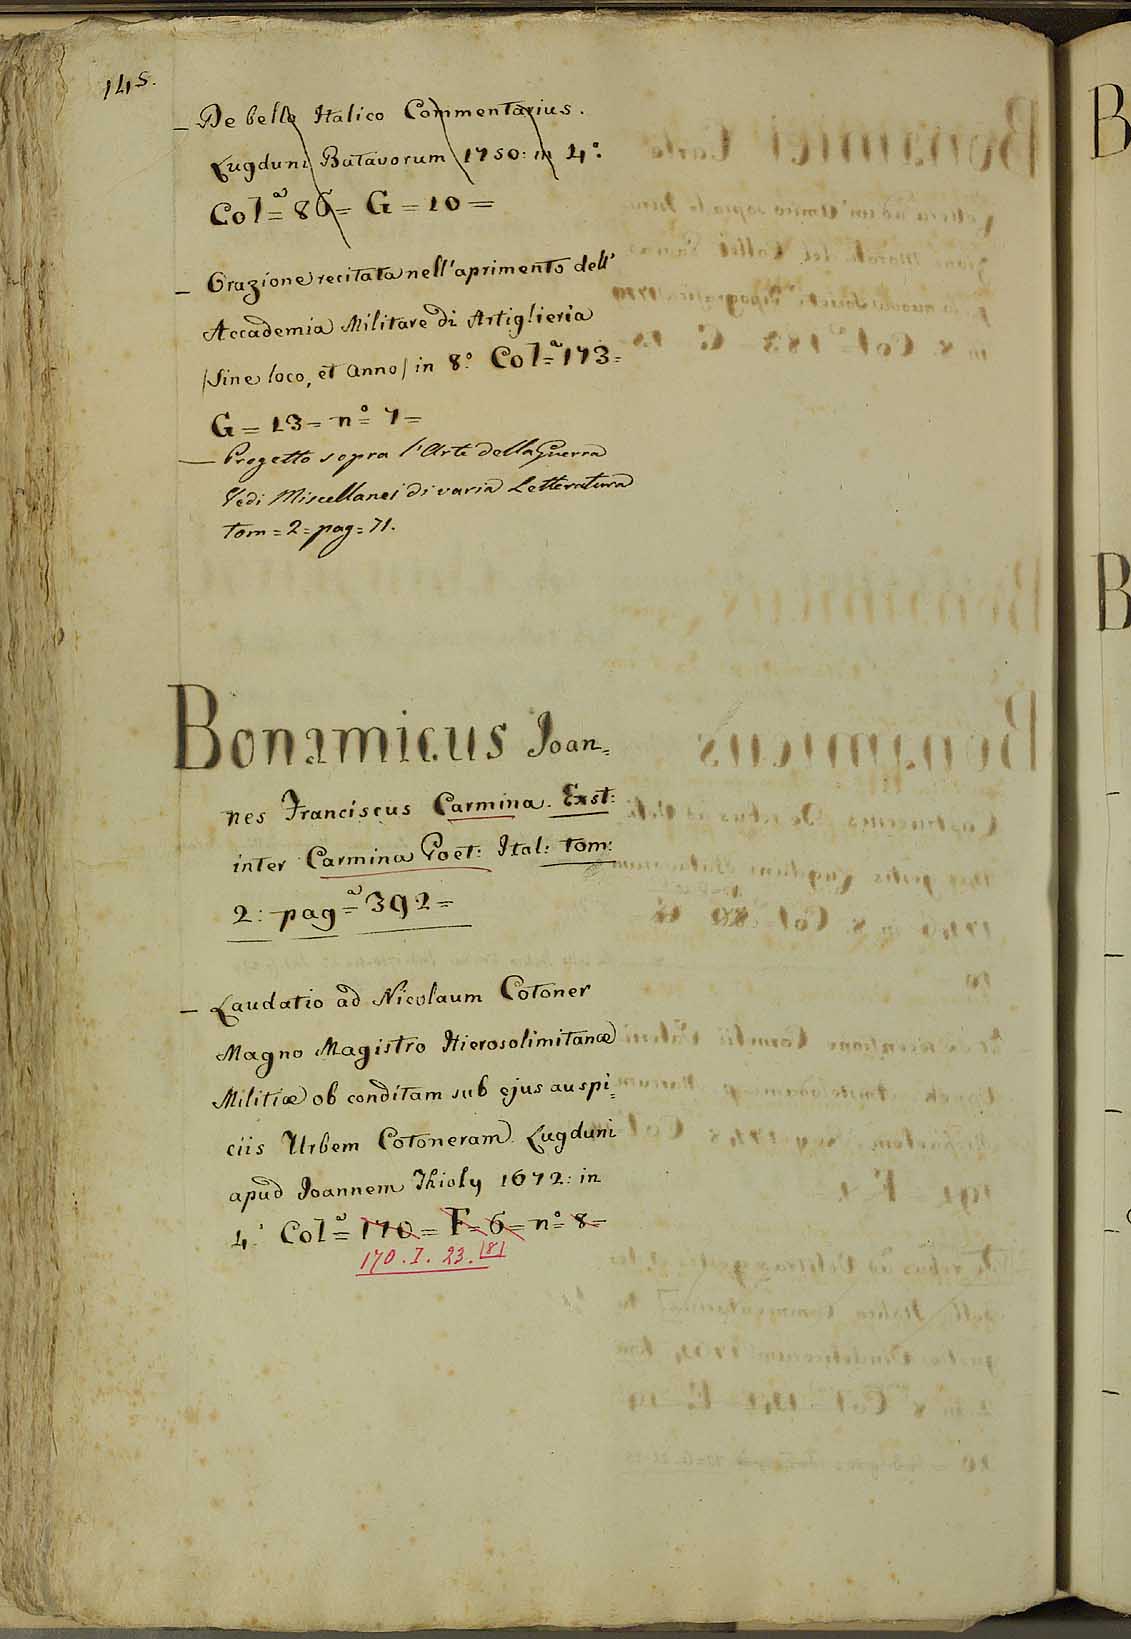 145.
— De bello Italico Commentarius.
Lugduni Batavorum 1750: in 4.º
Col=ª 86= G=10=
— Orazione recitata nell'aprimento dell'
Accademia Militare di Artiglieria
/sine loco, et anno/ in 8.º Col=ª 173=
G=13= nº= 7=
— Progetto sopra l'Arte della Guerra
Vedi Miscellanei di varia Letteratura
tom=2=pag=71.
Bonamicus Joan=
nes Franciscus Carmina. Exst:
inter Carmina Poet: Ital: tom:
2: pag=ª 392=
— Laudatio ad Nicolaum Cotoner
Magno Magistro Hierosolimitanæ
Militiæ ob conditam sub ejus auspi=
ciis Urbem Cotoneram. Lugduni
apud Joannem Thioly 1672: in
4.º Col=ª 170= F=6= nº= 8=
170. I. 23. |8|
B
B